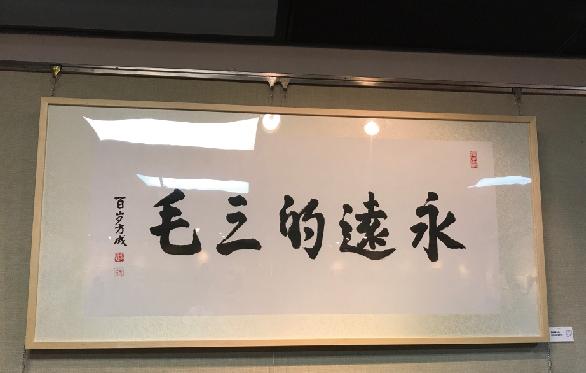 永遠的三毛
百岁方成